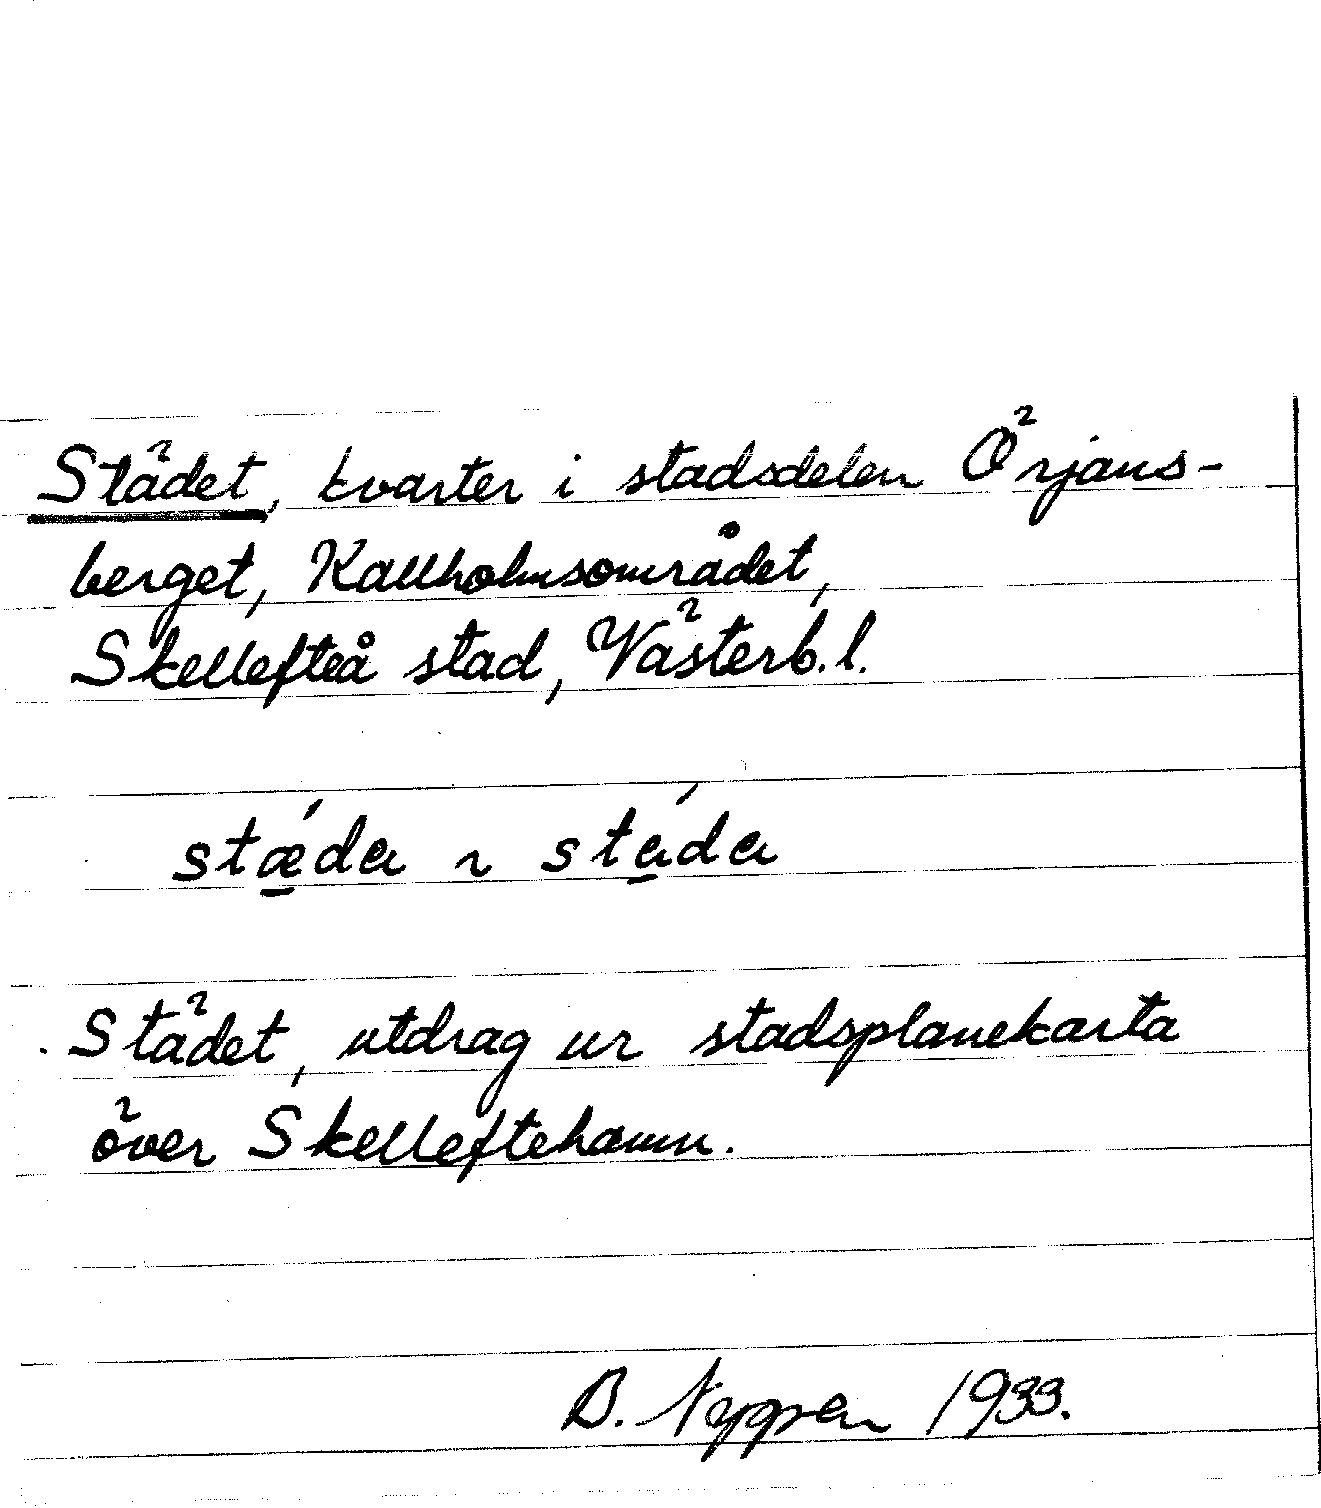 Städet, kvarter i stadsdelen Örjans-
berget, Kallholmsområdet,
Skellefteå stad, Västerb.l.
stǽda ~ stáda
Städet, utdrag ur stadsplanekarta
över Skelleftehamn.
B. Nygren 1933.